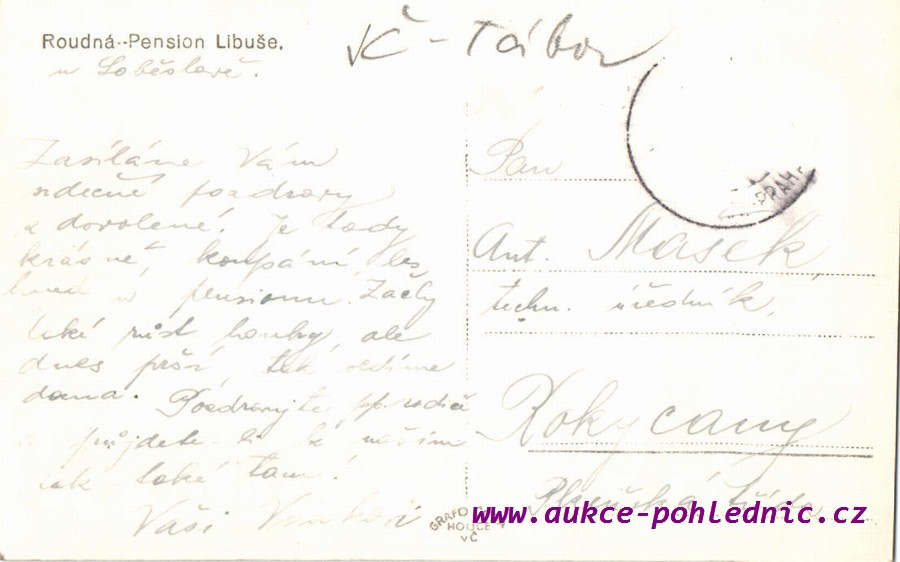 Roudná--Pension Libuše.
u Soběslavě.
VČ - Tábor
Zasíláme Vám
srdečné pozdravy
z dovolené. Je tady
krásně, koupání, les
hned u pensionu. Začly
také růst houby, ale
dnes prší tak sedíme
doma. Pozdravujte pp. rodiče
a půjdete-li k našim
tak také tam!
Vaši
Pan
Ant. Mašek,
techn. úředník,
Rokycany
Plzeňská třída
PRAH
GRAFO
HOLICE
VČ
www.aukce-pohlednic.cz